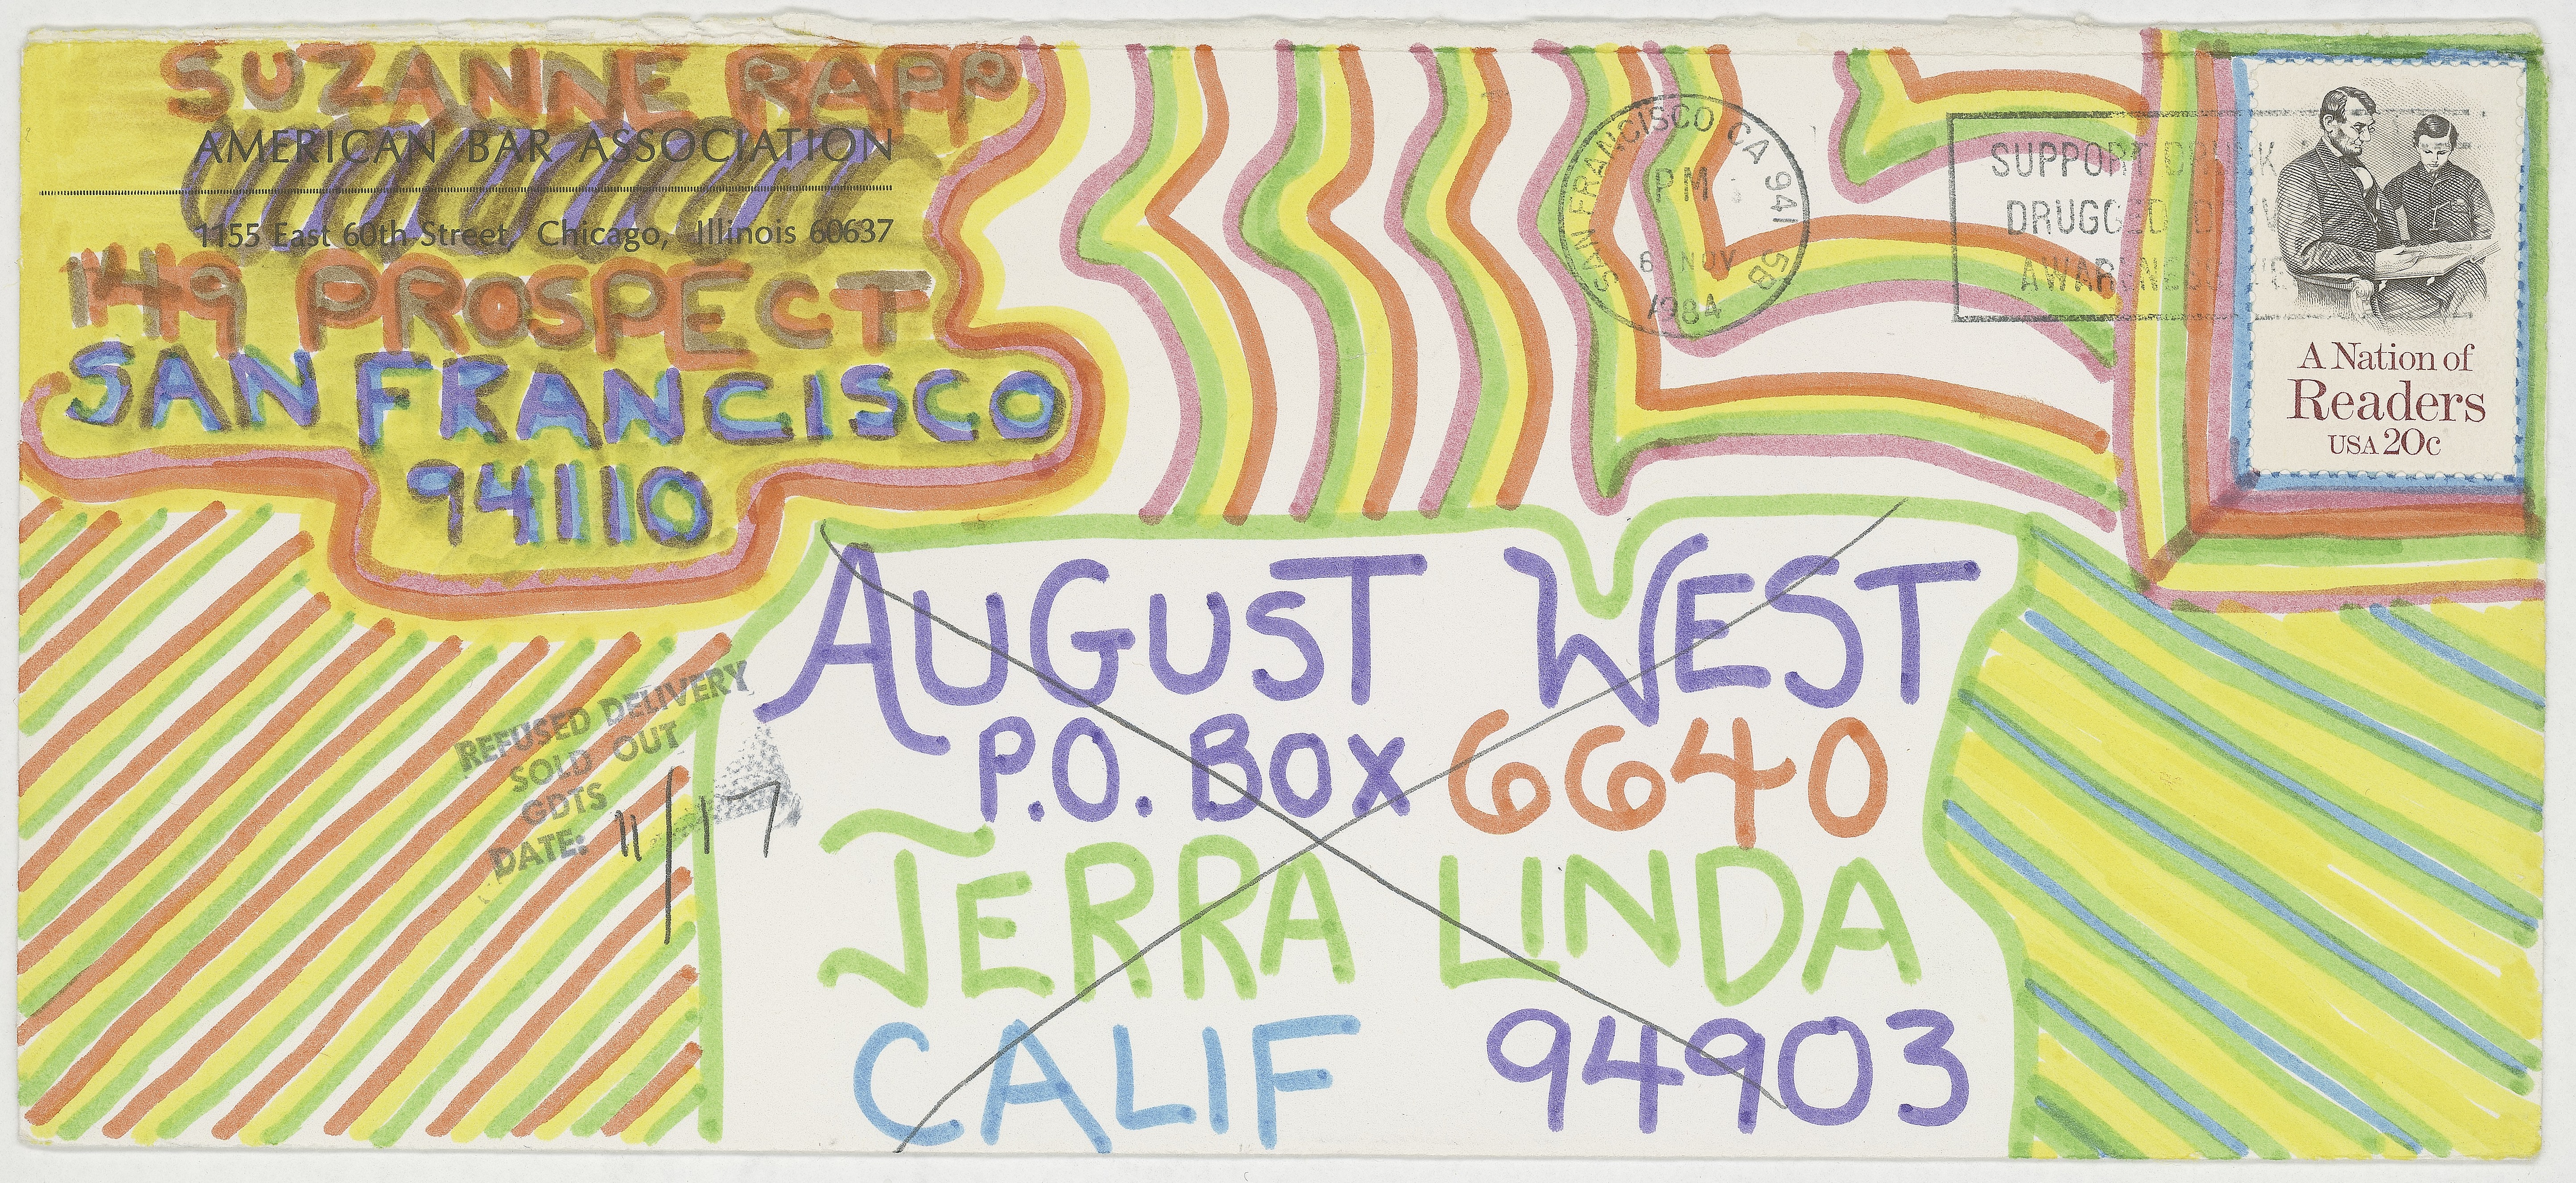 SUZANNE RAPP
AMERICAN BAR ASSOCIATION
1155 East 60th Street, Chicago, Illinois 60637
149 PROSPECT
SAN FRANCISCO
94110
SAN FRANCISCO CA 941 5B
PM
6 NOV
1984
SUPPORT DRUNK
DRUGGED
AWARENESS
A Nation of
Readers
USA 20c
AUGUST WEST
P.O. BOX 6640
TERRA LINDA
CALIF 94903
REFUSED DELIVERY
SOLD OUT
GDTS
DATE: 11/17